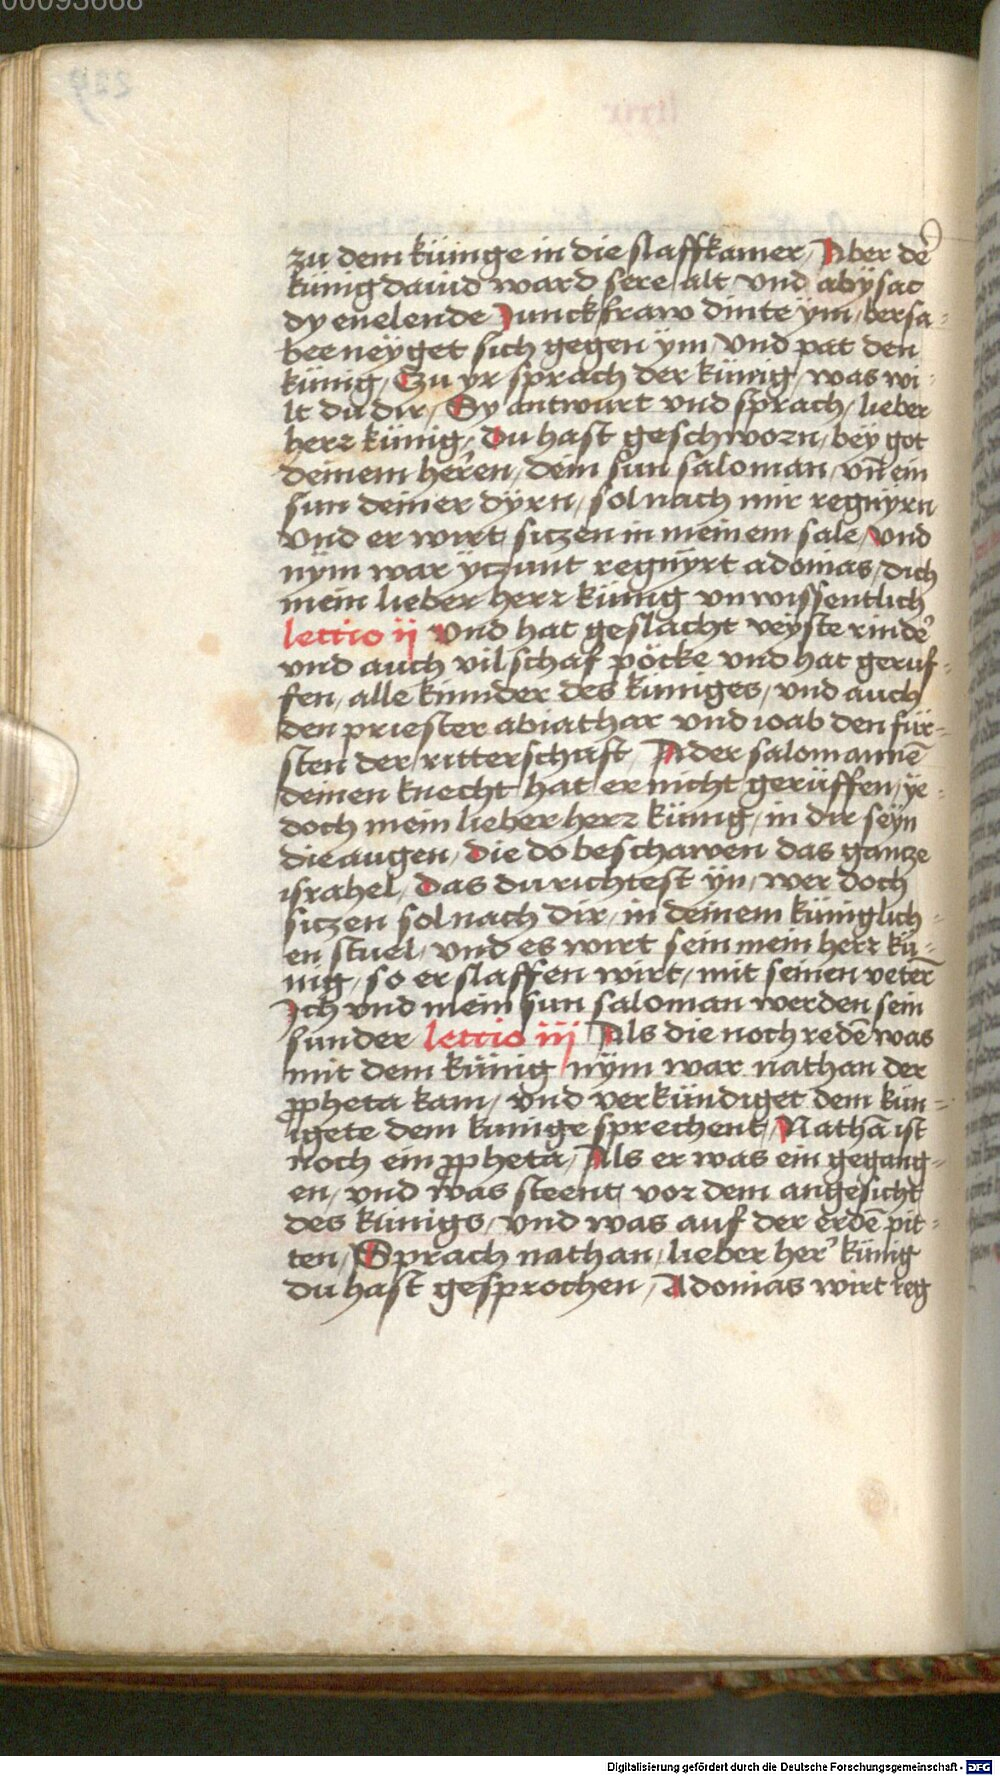 00093668
zu dem künige in die slaffkamer / Aber de᷒
künig dauid ward sere alt vnd abysac
dy enelende Junckfraw dinte ym / bersa-
bee neyget sich gegen ym / vnd pat den
künig / Zu yr sprach der künig / was wi-
lt du dir / Sy antwurt vnd sprach / lieber
herr künig / du hast geschworn / bey got
deinem herren / dein sun saloman / vn̄ ein
sun deiner dyrn / sol nach mir regnyrn
vnd er wirt siczen in meinem sale / vnd
nym war yczunt regnyrt adonias / dich
mein lieber herr künig vnwissentlich
lectio ij Vnd hat geslacht veyste rinde᷒
vnd auch vil schaf pöcke vnd hat geruf-
fen / alle kinnder des küniges / vnd auch
den priester abiathar vnd ioab den für-
sten der ritterschaft / Ader salomannē
deinen knecht hat er nicht gerüffen / ye-
doch mein lieber herr künig / in dir seyn
die augen / die do beschawen das gancze
israhel / das du richtest yn / wer doch
siczen sol nach dir / in deinem küniglich-
en stuel / vnd es wirt sein mein herr kü-
nig / so er slaffen wirt / mit seinen veterē
Ich vnd mein sun saloman werden sein
sunder lectio iij Als die noch redē was
mit dem künig / nym war nathan der
ꝓpheta kam / vnd verkündiget dem kün-
igete dem künige sprechent / Nathā ist
noch ein ꝓpheta / Als er was ein gegang-
en / vnd was steent vor dem angesicht
des künigs / vnd was auf der erdē pit-
ten / Sprach nathan / lieber her᷒ künig
du hast gesprochen / Adonias wirt reg
Digitalisierung gefördert durch die Deutsche Forschungsgemeinschaft - DFG